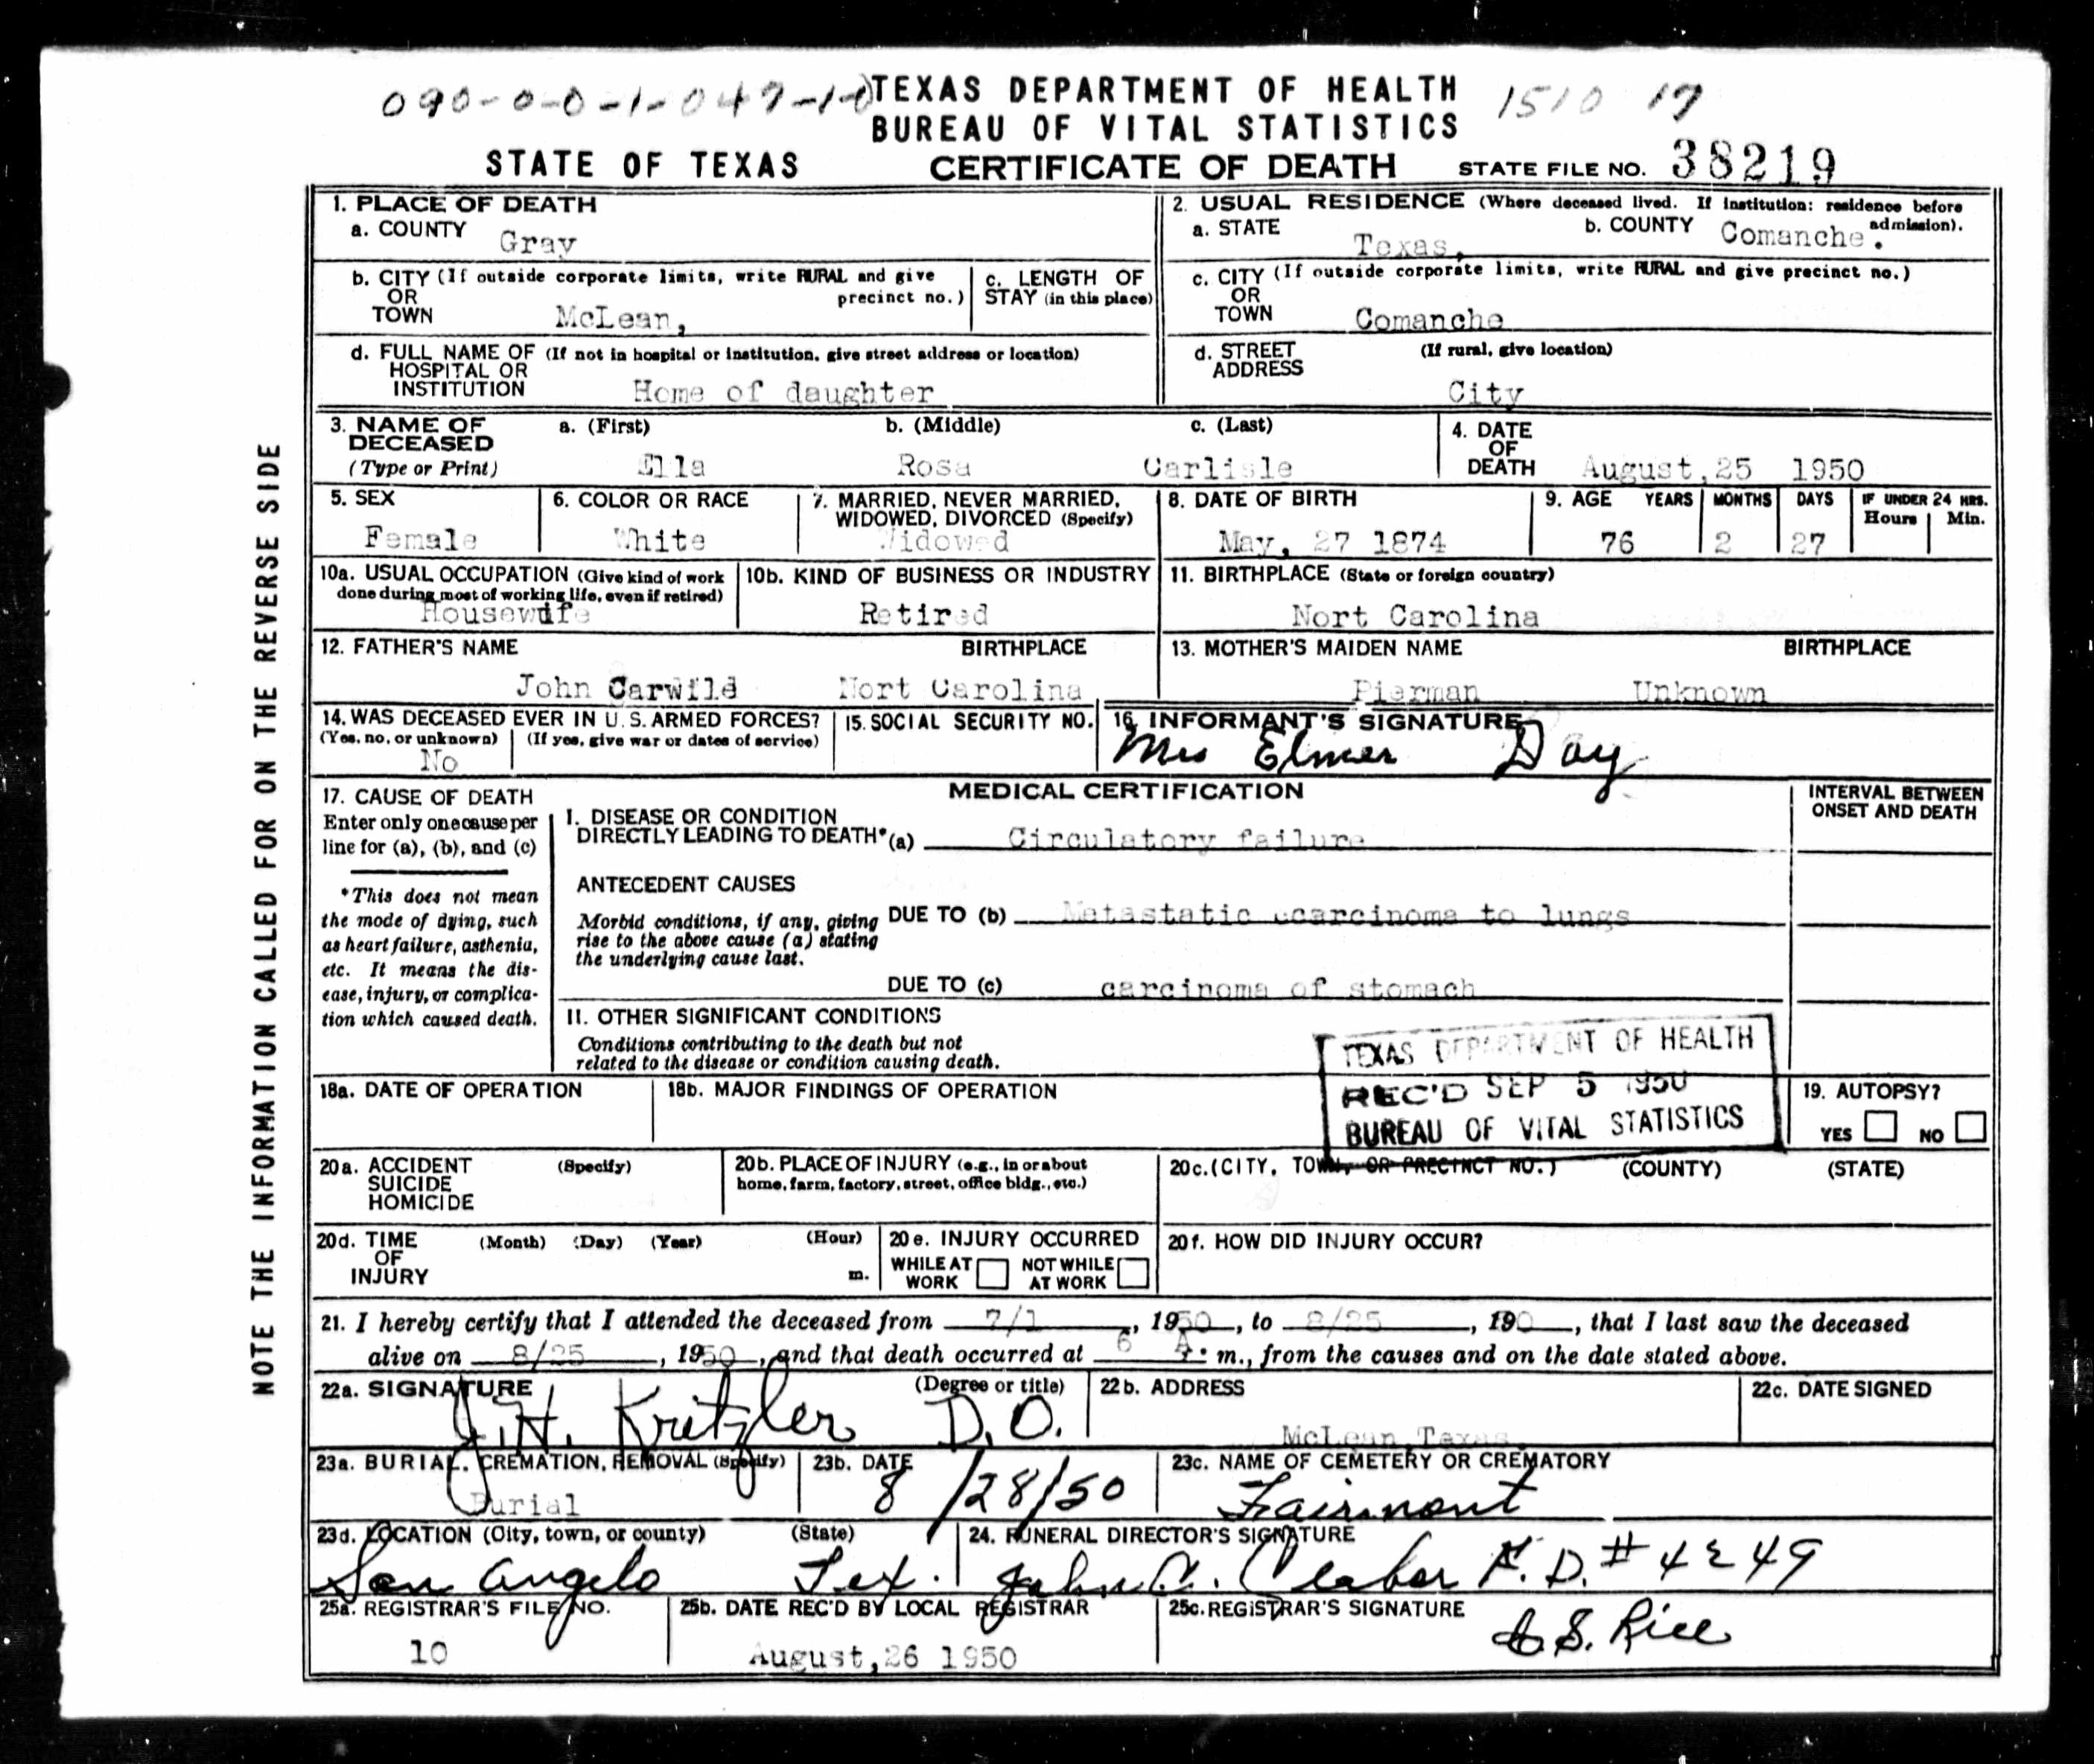 090-0-0-1-047-10
TEXAS DEPARTMENT OF HEALTH
1510 17
BUREAU OF VITAL STATISTICS
STATE OF TEXAS CERTIFICATE OF DEATH STATE FILE NO. 38219
NOTE THE INFORMATION CALLED FOR ON THE REVERSE SIDE
1. PLACE OF DEATH
a. COUNTY Gray
2. USUAL RESIDENCE (Where deceased lived. If institution: residence before admission).
a. STATE Texas, b. COUNTY Comanche.
b. CITY (If outside corporate limits, write RURAL and give precinct no.)
OR
TOWN McLean,
c. LENGTH OF
STAY (in this place)
c. CITY (If outside corporate limits, write RURAL and give precinct no.)
OR
TOWN Comanche
d. FULL NAME OF (If not in hospital or institution, give street address or location)
HOSPITAL OR
INSTITUTION Home of daughter
d. STREET (If rural, give location)
ADDRESS City
3. NAME OF a. (First) b. (Middle) c. (Last)
DECEASED
(Type or Print) Ella Rosa Carlisle
4. DATE
OF
DEATH August,25 1950
5. SEX
Female
6. COLOR OR RACE
White
7. MARRIED, NEVER MARRIED,
WIDOWED, DIVORCED (Specify)
Widowed
8. DATE OF BIRTH
May, 27 1874
9. AGE YEARS MONTHS DAYS IF UNDER 24 HRS.
Hours Min.
76 2 27
10a. USUAL OCCUPATION (Give kind of work
done during most of working life, even if retired)
Housewife
10b. KIND OF BUSINESS OR INDUSTRY
Retired
11. BIRTHPLACE (State or foreign country)
Nort Carolina
12. FATHER'S NAME BIRTHPLACE
John Carwile Nort Carolina
13. MOTHER'S MAIDEN NAME BIRTHPLACE
Pierman Unknown
14. WAS DECEASED EVER IN U.S. ARMED FORCES?
(Yes, no, or unknown) (If yes, give war or dates of service)
No
15. SOCIAL SECURITY NO.
16. INFORMANT'S SIGNATURE
Mrs Elmer Day
17. CAUSE OF DEATH
Enter only one cause per
line for (a), (b), and (c)
*This does not mean
the mode of dying, such
as heart failure, asthenia,
etc. It means the dis-
ease, injury, or complica-
tion which caused death.
MEDICAL CERTIFICATION
INTERVAL BETWEEN
ONSET AND DEATH
I. DISEASE OR CONDITION
DIRECTLY LEADING TO DEATH* (a) Circulatory failure
ANTECEDENT CAUSES
Morbid conditions, if any, giving
rise to the above cause (a) stating
the underlying cause last.
DUE TO (b) Metastatic ccarcinoma to lungs
DUE TO (c) carcinoma of stomach
II. OTHER SIGNIFICANT CONDITIONS
Conditions contributing to the death but not
related to the disease or condition causing death.
TEXAS DEPARTMENT OF HEALTH
REC'D SEP 5 1950
BUREAU OF VITAL STATISTICS
18a. DATE OF OPERATION
18b. MAJOR FINDINGS OF OPERATION
19. AUTOPSY?
YES NO
20a. ACCIDENT (Specify)
SUICIDE
HOMICIDE
20b. PLACE OF INJURY (e.g., in or about
home, farm, factory, street, office bldg., etc.)
20c. (CITY, TOWN, OR PRECINCT NO.) (COUNTY) (STATE)
20d. TIME (Month) (Day) (Year) (Hour)
OF
INJURY m.
20e. INJURY OCCURRED
WHILE AT WORK NOT WHILE AT WORK
20f. HOW DID INJURY OCCUR?
21. I hereby certify that I attended the deceased from 7/1, 1950, to 8/25, 190, that I last saw the deceased
alive on 8/25, 1950, and that death occurred at 6 A. m., from the causes and on the date stated above.
22a. SIGNATURE (Degree or title)
J.H. Kritzler D.O.
22b. ADDRESS
McLean,Texas
22c. DATE SIGNED
23a. BURIAL, CREMATION, REMOVAL (Specify)
Burial
23b. DATE
8/28/50
23c. NAME OF CEMETERY OR CREMATORY
Fairmont
23d. LOCATION (City, town, or county) (State)
San Angelo Tex.
24. FUNERAL DIRECTOR'S SIGNATURE
John C. F.D. # 4249
25a. REGISTRAR'S FILE NO.
10
25b. DATE REC'D BY LOCAL REGISTRAR
August,26 1950
25c. REGISTRAR'S SIGNATURE
S. Rice